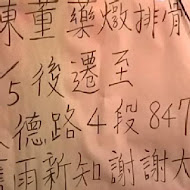 東董藥燉排骨
/5後遷至
德路4段847
雨新知謝謝大